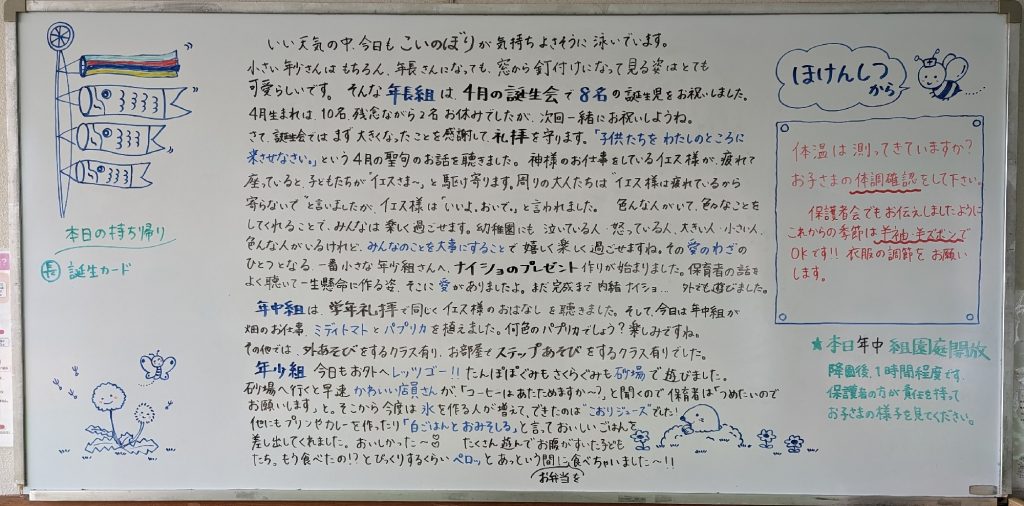 いい天気の中、今日もこいのぼりが気持ちよさそうに泳いでいます。
小さい年少さんはもちろん、年長さんになっても、窓から釘付けになって見る姿はとても
可愛らしいです。そんな年長組は、4月の誕生会で8名の誕生児をお祝いしました。
4月生まれは、10名、残念ながら2名お休みでしたが、次回一緒にお祝いしようね。
さて、誕生会ではまず大きくなったことを感謝して、礼拝を守ります。「子供たちをわたしのところに
来させなさい。」という4月の聖句のお話を聴きました。神様のお仕事をしているイエス様が、疲れて
座っていると、子どもたちが“イエスさま〜”と駆け寄ります。周りの大人たちは“イエス様は疲れているから
寄らないで”と言いましたが、イエス様は“いいよ。おいで。”と言われました。色んな人がいて、色々なことを
してくれることで、みんなは楽しく過ごせます。幼稚園にも泣いている人・怒っている人、大きい人・小さい人、
色んな人がいるけれど、みんなのことを大事にすることで嬉しく楽しく過ごせますね。その愛のわざの
ひとつとなる、一番小さな年少組さんへ、ナイショのプレゼント作りが始まりました。保育者の話を
よく聴いて一生懸命に作る姿、そこに愛がありましたよ。まだ完成まで内緒ナイショ... 外でも遊びました。
年中組は、学年礼拝で同じくイエス様のおはなしを聴きました。そして、今日は年中組が
畑のお仕事、ミディトマトとパプリカを植えました。何色のパプリカでしょう?楽しみですね。
その他では、外あそびをするクラス有り、お部屋でステップあそびをするクラス有りでした。
年少組 今日もお外へレッツゴー!! たんぽぽぐみもさくらぐみも砂場で遊びました。
砂場へ行くと早速かわいい店員さんが、「コーヒーはあたためますか〜?」と聞くので保育者は「つめたいので
お願いします」と。そこから今度は氷を作る人が増えて、できたのは“こおりジュース”でした!
他にもプリンやカレーを作ったり「白ごはんとおみそしる」と言っておいしいごはんを
差し出してくれました。おいしかった〜♡ たくさん遊んでお腹がすいた子ども
たち。もう食べたの!?とびっくりするくらいペロッとあっという間に食べちゃいました〜!!
お弁当を
本日の持ち帰り
長 誕生カード
ほけんしつ
から
体温は測ってきていますか?
お子さまの体調確認をして下さい。
保護者会でもお伝えしましたように
これからの季節は半袖・半ズボンで
OKです!! 衣服の調節をお願い
します。
★本日年中組園庭開放
降園後、1時間程度です。
保護者の方が責任を持って
お子さまの様子を見てください。